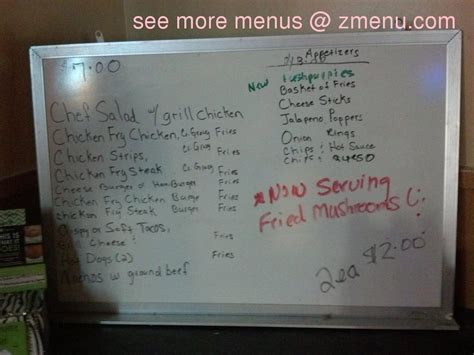 see more menus @ zmenu.com
$7.00
Chef Salad w/ grill chicken
Chicken Fry Chicken, & Gravy Fries
Chicken Strips, & Gravy Fries
Chicken Fry Steak & Gravy Fries
Cheese Burger or Ham Burger Fries
Chicken Fry Chicken Burger Fries
Chicken Fry Steak Burger Fries
Crispy or Soft Tacos, Fries
Grill Cheese Fries
Hot Dogs (2) Fries
Nachos w ground beef
Appetizers
New Hushpuppies
Basket of Fries
Cheese Sticks
Jalapeno Poppers
Onion Rings
Chips & Hot Sauce
Chips &
Now Serving
Fried Mushrooms (:
Tea $2.00